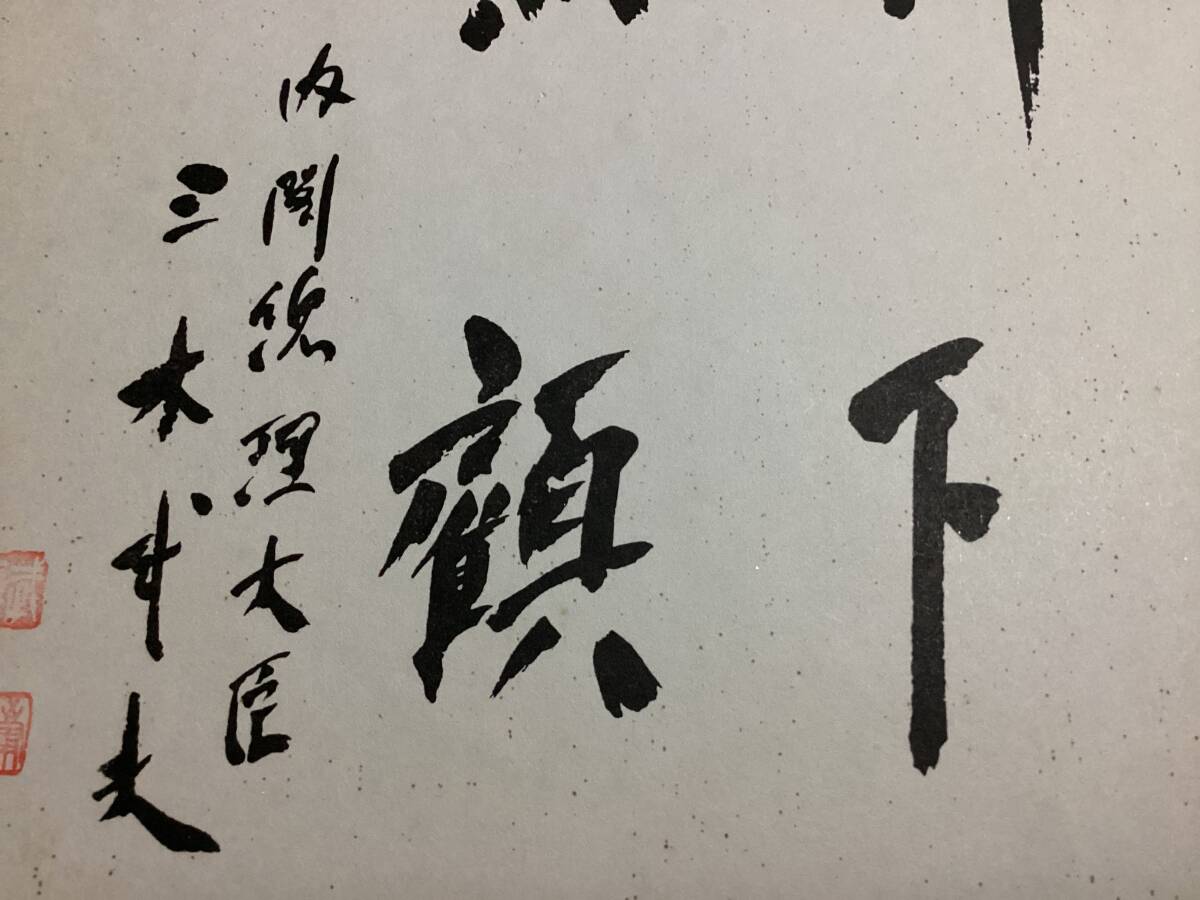 下
顧
内閣総理大臣
三木武夫